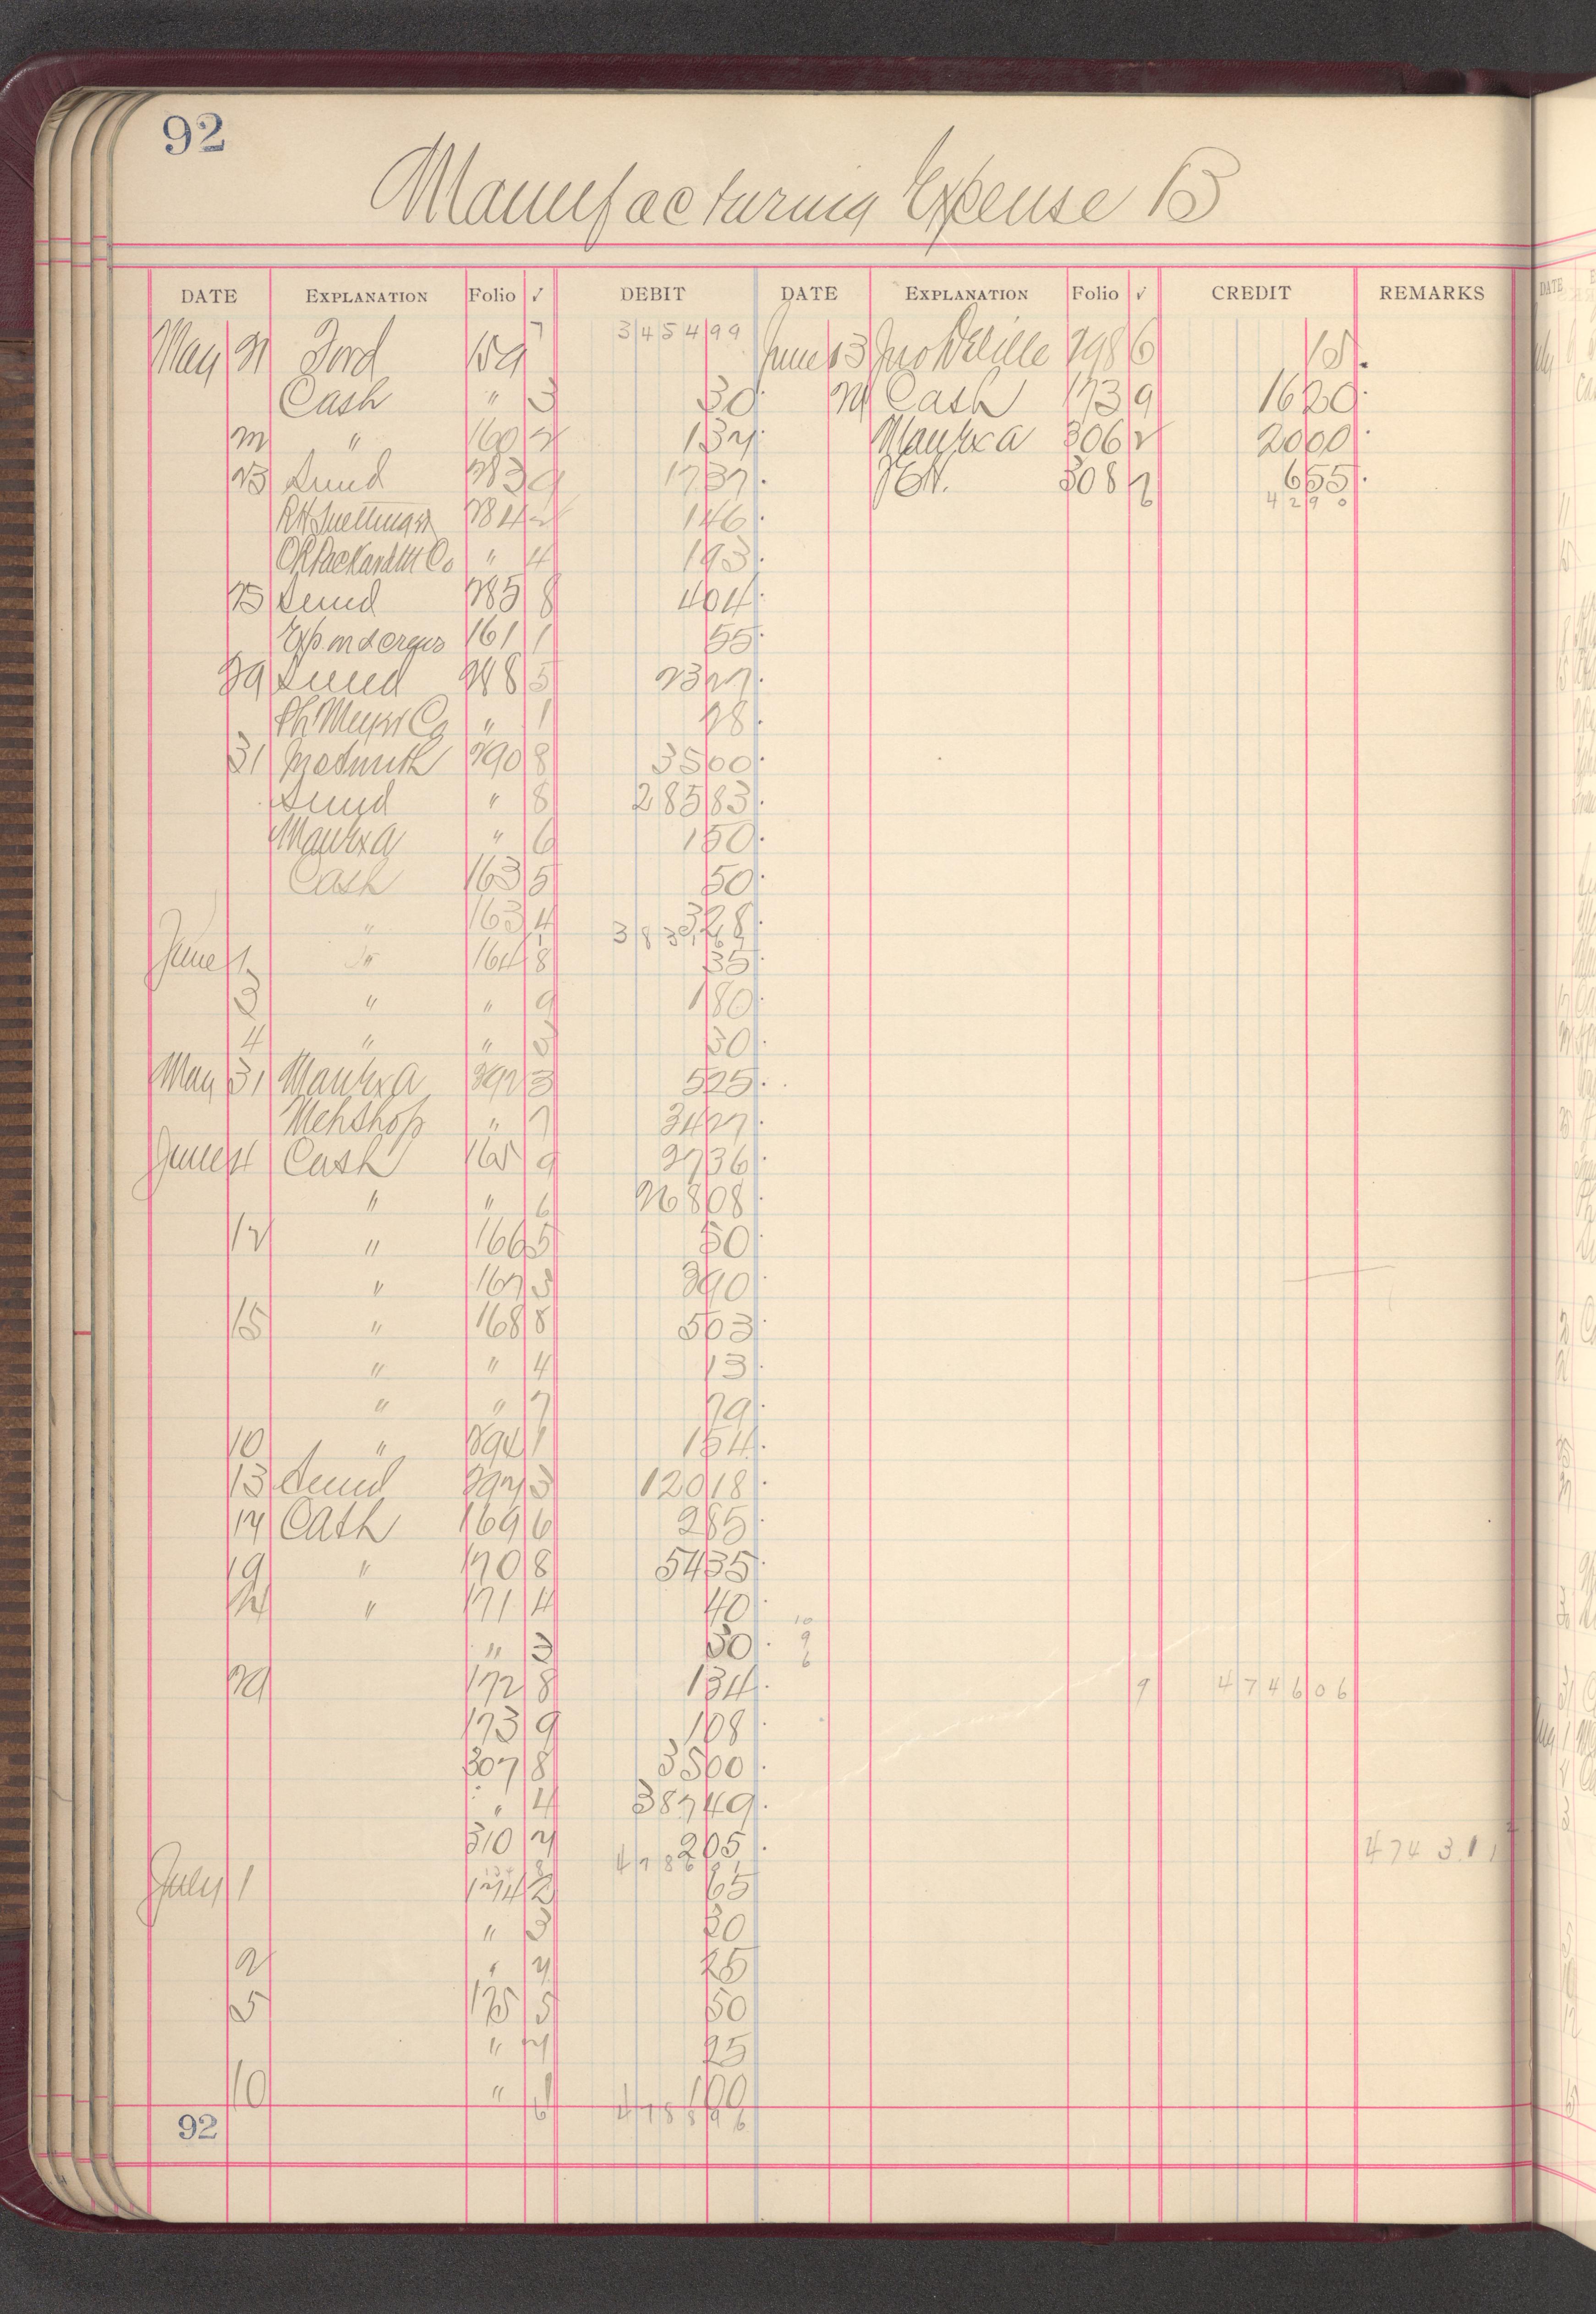 92
Manufacturing Expense B
DATE EXPLANATION Folio √ DEBIT DATE EXPLANATION Folio √ CREDIT REMARKS
May 21 Ford 159 7 3454 99 June 13 Jno 298 6 15
Cash " 3 30 Cash 173 9 1620
" 160 2 137 Manfxa 306 2 2000
23 Sund 283 9 1737 308 655
284 2 146 4290
Co " 4 193
25 Sund 285 8 404
161 1 55
29 Sund 288 5 2327
Ph Meyer Co " 1 28
31 290 8 3500
Sund " 8 28583
Manfxa " 6 150
Cash 163 5 50
" 163 4 328
June 1 " 164 8 35
3 " " 9 180
4 " " 3 30
May 31 Manfxa 292 3 525
Mchshop " 7 3427
June 4 Cash 165 9 2736
" " 6 26808
12 " 166 5 50
" 167 3 390
15 " 168 8 503
" " 4 13
" " 7 79
10 " 294 1 154
13 Sund 297 3 12018
17 Cash 169 6 285
19 " 170 8 5435
" 171 4 40 10
" 3 50 9
6
29 172 8 134 9 4746 06
173 9 108
307 8 3500
" 4 38749
310 2 205 4743.11
July 1 174 2 65
" 3 20
2 " 2 25
5 175 5 50
" 2 25
10 " 6 100
92